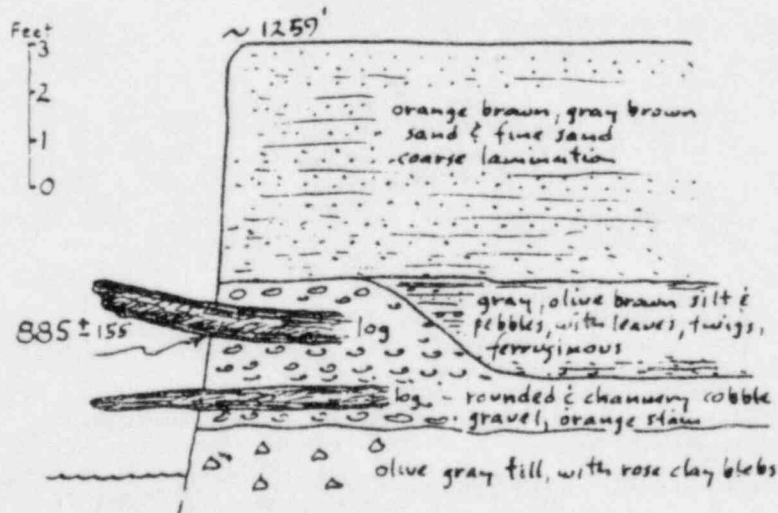 Feet
3
2
1
0
~ 1259'
orange brown, gray brown
sand & fine sand
coarse lamination
gray, olive brown silt &
pebbles, with leaves, twigs,
ferruginous
885 ± 155
log
log - rounded & channery cobble
gravel, orange stain
olive gray till, with rose clay blebs